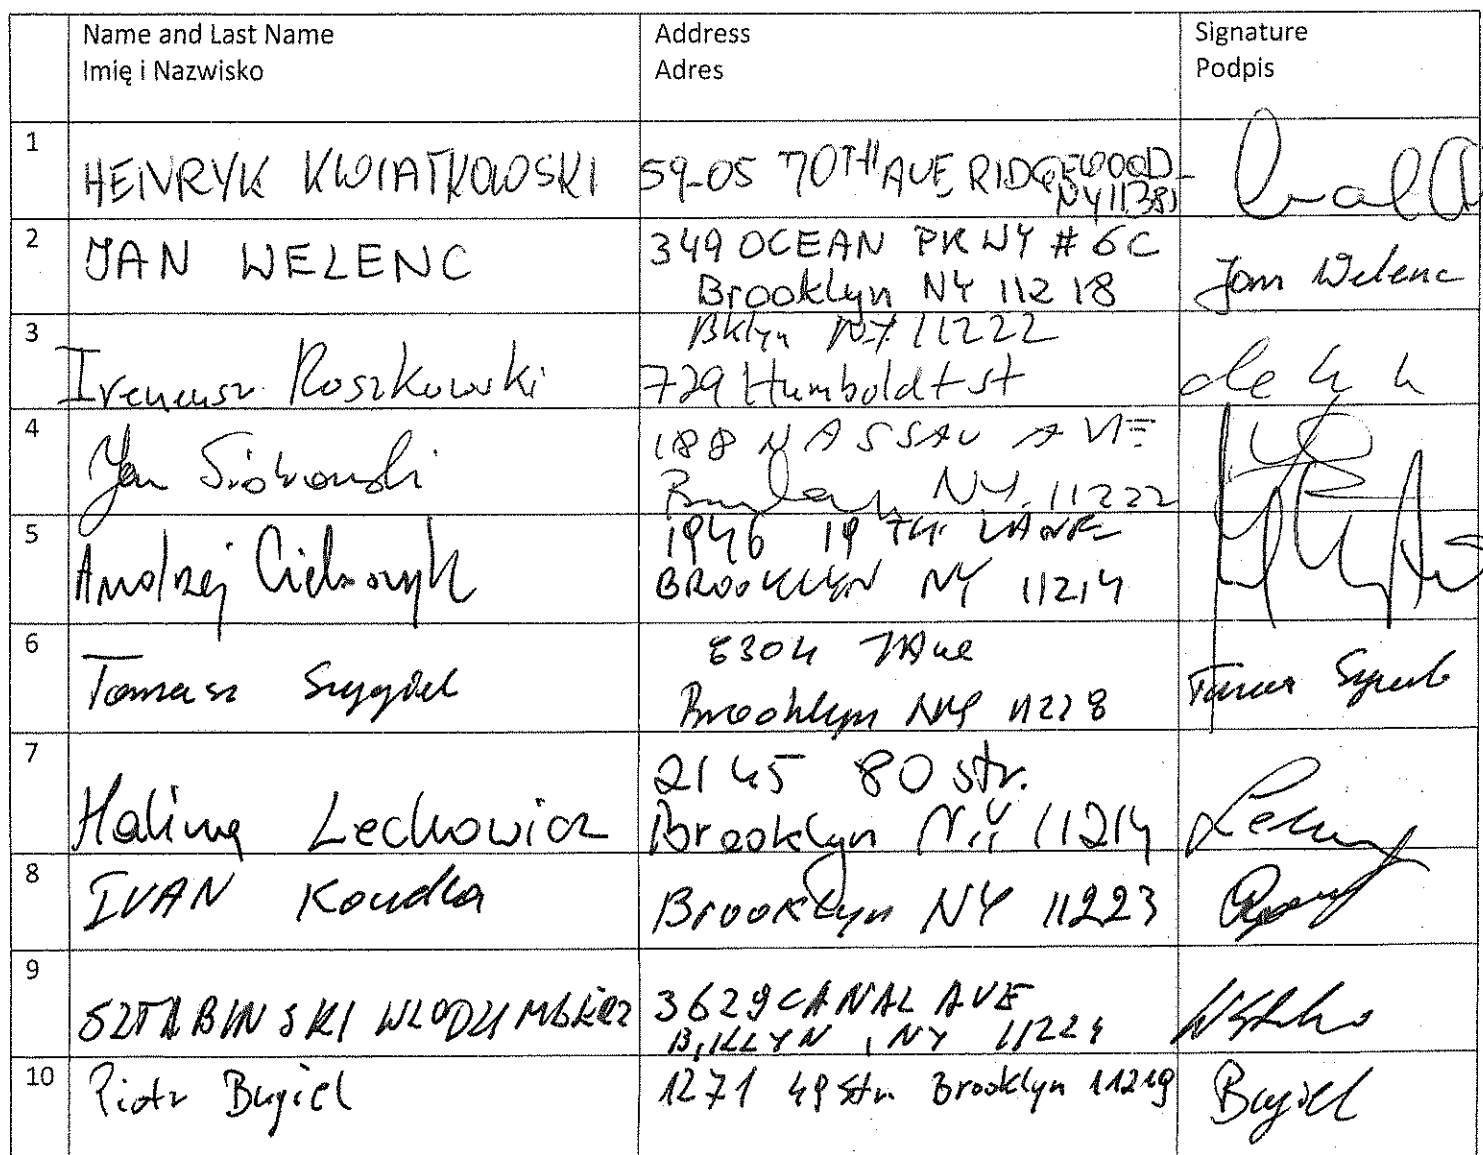 Name and Last Name
Imię i Nazwisko
Address
Adres
Signature
Podpis
1
HENRYK KWIATKOWSKI
59-05 70TH AVE RIDGEWOOD
NY 11385
2
JAN WELENC
349 OCEAN PKWY # 6C
Brooklyn NY 11218
Jan Welenc
3
Ireneusz Roszkowski
Bklyn NY 11222
729 Humboldt st
4
Jan
188 NASSAU AVE
NY. 11222
5
Andrzej
1946 19 TH LANE
BROOKLYN NY 11214
6
Tomasz
6304
Brooklyn NY 11228
7
Halina Lechowicz
2145 80 str.
Brooklyn N.Y 11214
8
IVAN Koudla
Brooklyn NY 11223
9
SZTABINSKI WLODZIMIERZ
3629 CANAL AVE
NY 11224
10
Piotr Bugiel
1271 49 Str. Brooklyn 11219
Bugiel